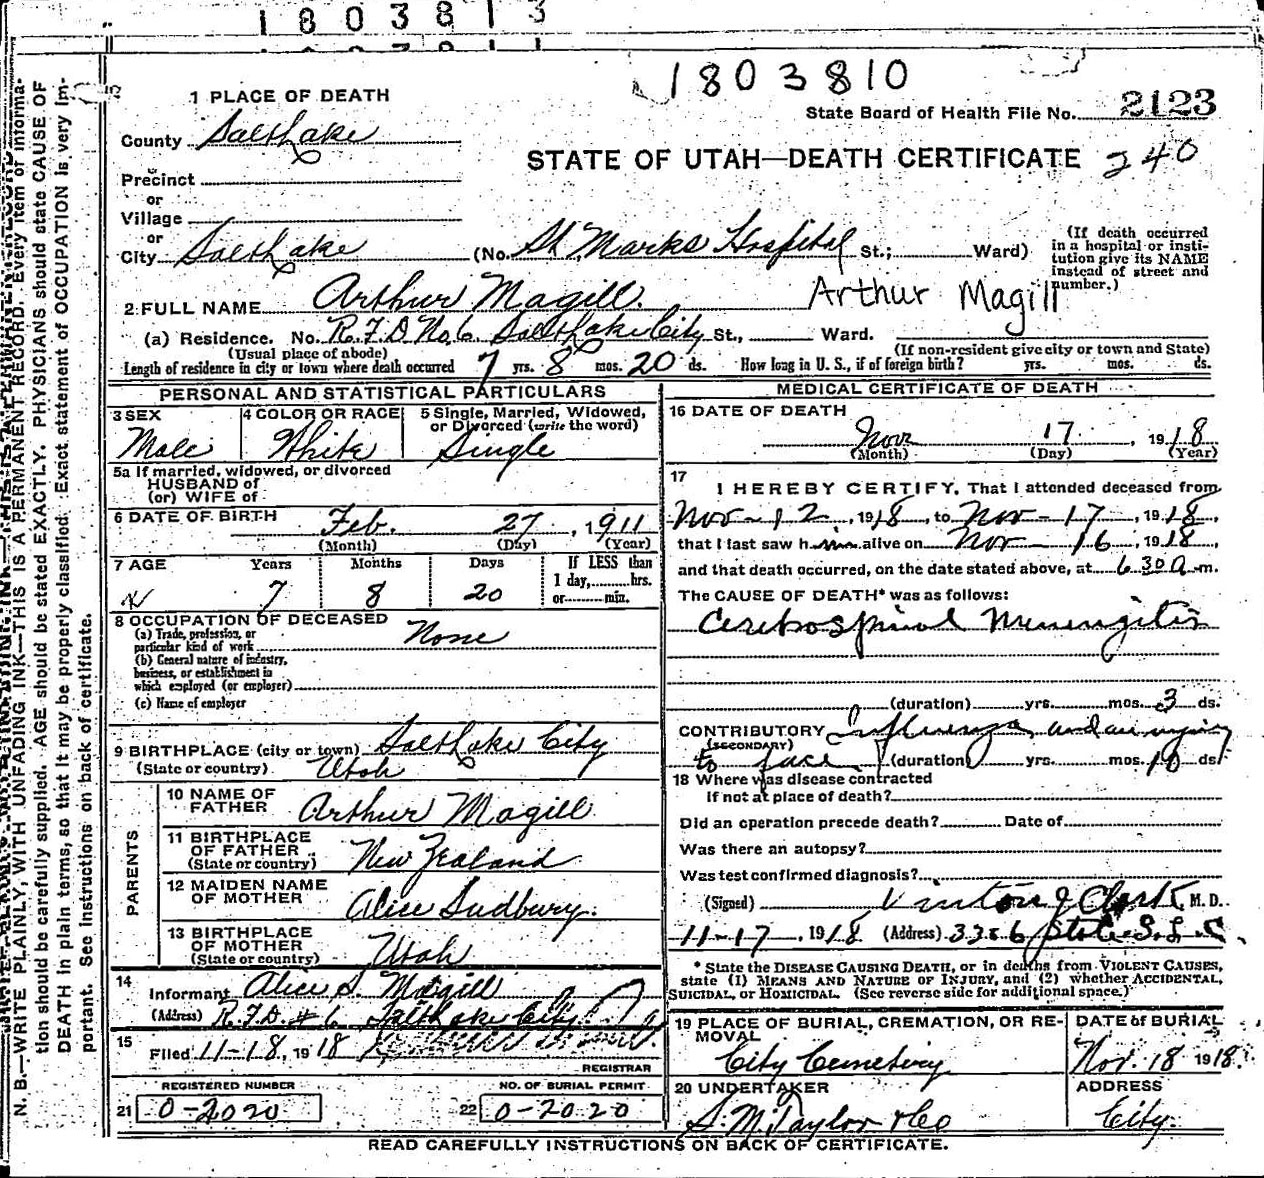 1803813
1803810
State Board of Health File No. 2123
STATE OF UTAH—DEATH CERTIFICATE 240
1 PLACE OF DEATH
County Salt Lake
Precinct
or
Village
or
City Salt Lake (No. St. Marks Hospital St.; Ward)
(If death occurred in a hospital or insti-
tution give its NAME
instead of street and
number.)
2 FULL NAME Arthur Magill. Arthur Magill
(a) Residence. No. R.F.D No. 6 Salt Lake City St., Ward.
(Usual place of abode) (If non-resident give city or town and State)
Length of residence in city or town where death occurred 7 yrs. 8 mos. 20 ds. How long in U. S., if of foreign birth? yrs. mos. ds.
PERSONAL AND STATISTICAL PARTICULARS
3 SEX 4 COLOR OR RACE 5 Single, Married, Widowed,
or Divorced (write the word)
Male White Single
5a If married, widowed, or divorced
HUSBAND of
(or) WIFE of
6 DATE OF BIRTH Feb. 27, 1911
(Month) (Day) (Year)
7 AGE Years Months Days If LESS than
1 day, hrs.
or min.
7 8 20
8 OCCUPATION OF DECEASED
(a) Trade, profession, or
particular kind of work None
(b) General nature of industry,
business, or establishment in
which employed (or employer)
(c) Name of employer
9 BIRTHPLACE (city or town) Salt Lake City
(State or country) Utah
PARENTS
10 NAME OF
FATHER Arthur Magill
11 BIRTHPLACE
OF FATHER
(State or country) New Zealand
12 MAIDEN NAME
OF MOTHER Alice Sudbury.
13 BIRTHPLACE
OF MOTHER
(State or country) Utah
14
Informant Alice S. Magill
(Address) R.F.D. # 6 Salt Lake City
15
Filed 11-18, 1918
REGISTRAR
REGISTERED NUMBER NO. OF BURIAL PERMIT
21 0-2020 22 0-2020
MEDICAL CERTIFICATE OF DEATH
16 DATE OF DEATH
Nov 17, 1918
(Month) (Day) (Year)
17
I HEREBY CERTIFY, That I attended deceased from
Nov-12, 1918, to Nov-17, 1918,
that I last saw him alive on Nov-16, 1918,
and that death occurred, on the date stated above, at 6 30 a m.
The CAUSE OF DEATH* was as follows:
Cerebrospinal Meningitis
(duration) yrs. mos. 3 ds.
CONTRIBUTORY Influenza and an injury
(SECONDARY)
to face (duration) yrs. mos. 10 ds.
18 Where was disease contracted
If not at place of death?
Did an operation precede death? Date of
Was there an autopsy?
Was test confirmed diagnosis?
(Signed) M. D.
11-17, 1918 (Address) State S.L.C.
* State the DISEASE CAUSING DEATH, or in deaths from VIOLENT CAUSES,
state (1) MEANS AND NATURE OF INJURY, and (2) whether ACCIDENTAL,
SUICIDAL, or HOMICIDAL. (See reverse side for additional space.)
19 PLACE OF BURIAL, CREMATION, OR RE-
MOVAL DATE of BURIAL
City Cemetery Nov. 18 1918.
20 UNDERTAKER ADDRESS
S. M. Taylor & Co City.
READ CAREFULLY INSTRUCTIONS ON BACK OF CERTIFICATE.
N. B.—WRITE PLAINLY, WITH UNFADING INK—THIS IS A PERMANENT RECORD. Every item of informa-
tion should be carefully supplied. AGE should be stated EXACTLY. PHYSICIANS should state CAUSE OF
DEATH in plain terms, so that it may be properly classified. Exact statement of OCCUPATION is very im-
portant. See instructions on back of certificate.